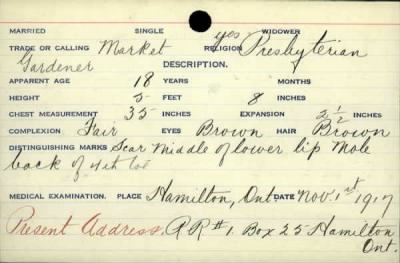 MARRIED SINGLE yes WIDOWER
TRADE OR CALLING Market RELIGION Presbyterian
Gardener DESCRIPTION.
APPARENT AGE 18 YEARS MONTHS
HEIGHT 5 FEET 8 INCHES
CHEST MEASUREMENT 35 INCHES EXPANSION 2 1/2 INCHES
COMPLEXION Fair EYES Brown HAIR Brown
DISTINGUISHING MARKS Scar middle of lower lip Mole
back of 4th toe
MEDICAL EXAMINATION. PLACE Hamilton, Ont DATE Nov. 1st 1917
Present Address. RR #1 Box 25 Hamilton
Ont.